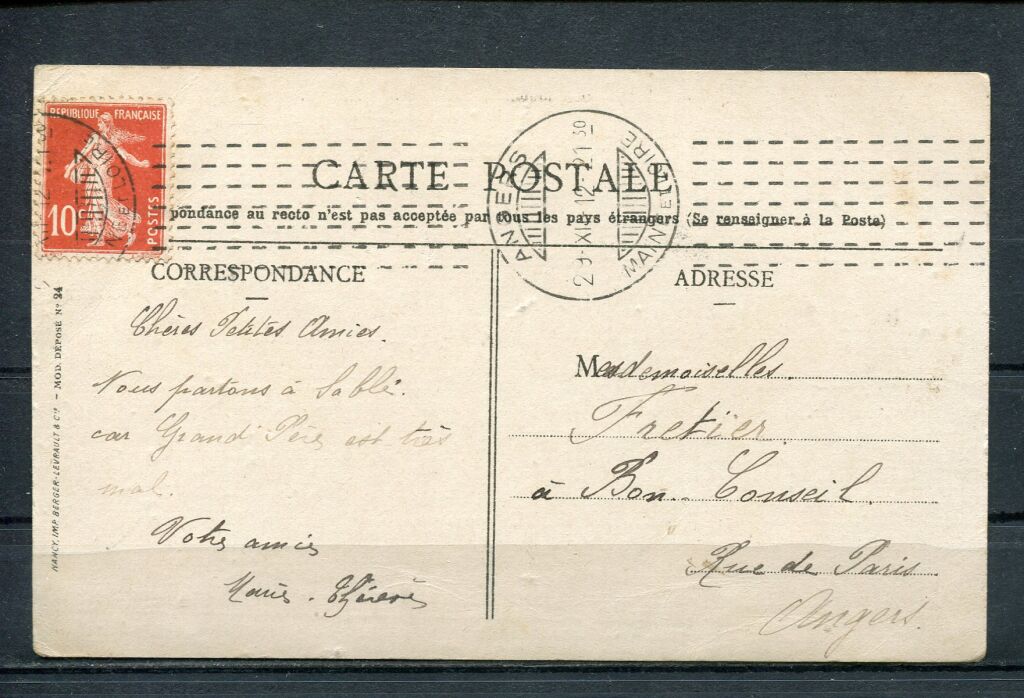 REPUBLIQUE FRANÇAISE
10c
POSTES
CARTE POSTALE
ANGERS
29 - XI 12 21 30
MAINE ET LOIRE
pondance au recto n'est pas acceptée par tous les pays étrangers (Se renseigner à la Poste)
CORRESPONDANCE
Chères Petites Amies.
Nous partons à Sablé.
car Grand Père est très
mal.
Votre amie
Marie-Thérèse
ADRESSE
Mesdemoiselles
Fretier
à Bon-Conseil
Rue de Paris
Angers.
NANCY, IMP. BERGER-LEVRAULT & Cie. — MOD. DÉPOSÉ No 24